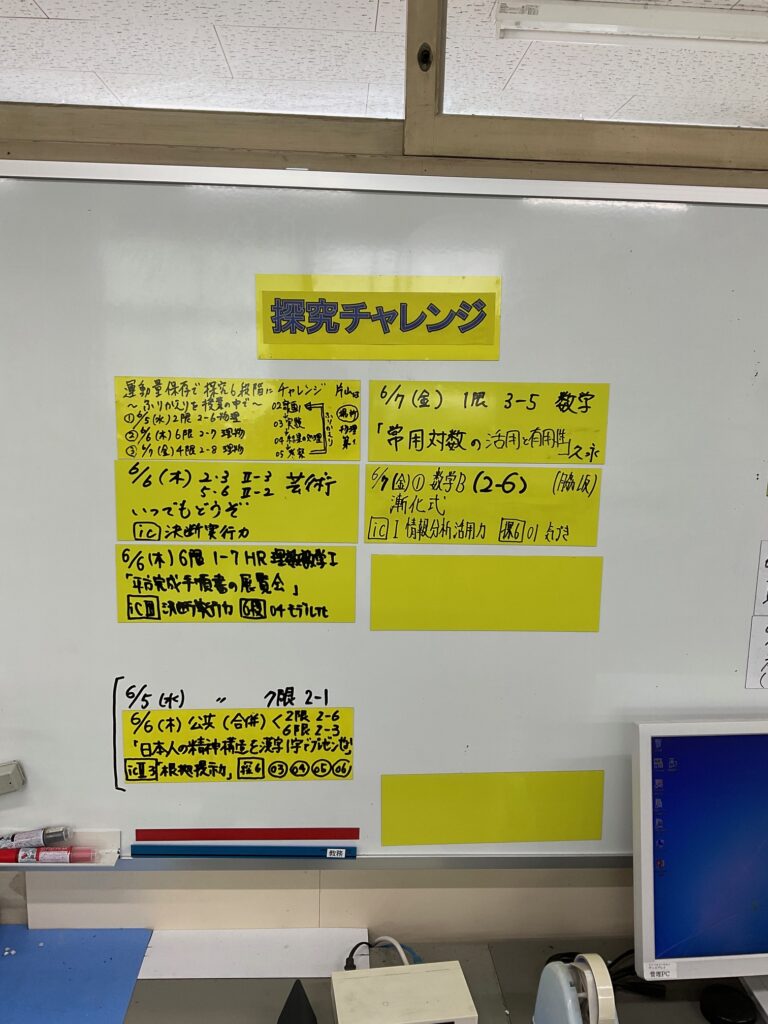 探究チャレンジ
運動量保存で探究6段階にチャレンジ 片山
~ふりかえりを授業の中で~
①6/5(水)2限 2-6 物理
②6/6(木)6限 2-7 理物
③6/7(金)4限 2-8 理物
02計画
03実験
04結果の処理
05考察
ふりかえり
場所
物理
第1
6/6(木) 2・3 Ⅱ-3 芸術
5・6 Ⅱ-2
いつでもどうぞ
ic 決断実行力
6/6(木)6限 1-7HR 理数数学Ⅰ
「平方完成手順書の展覧会」
icⅢ 決断実行力 6段 04モデル化
6/5(水) 〃 7限 2-1
6/6(木)公共(合併)く2限 2-6
6限 2-3
「日本人の精神構造を漢字1字でプレゼンせよ」
icⅡ3「根拠提示力」探6 03 04 05 06
6/7(金) 1限 3-5 数学
「常用対数の活用と有用性」久永
6/7(金)① 数学B (2-6) (脇坂)
漸化式
ic Ⅰ 情報分析活用力 探6 01 気づき
教務
管理PC